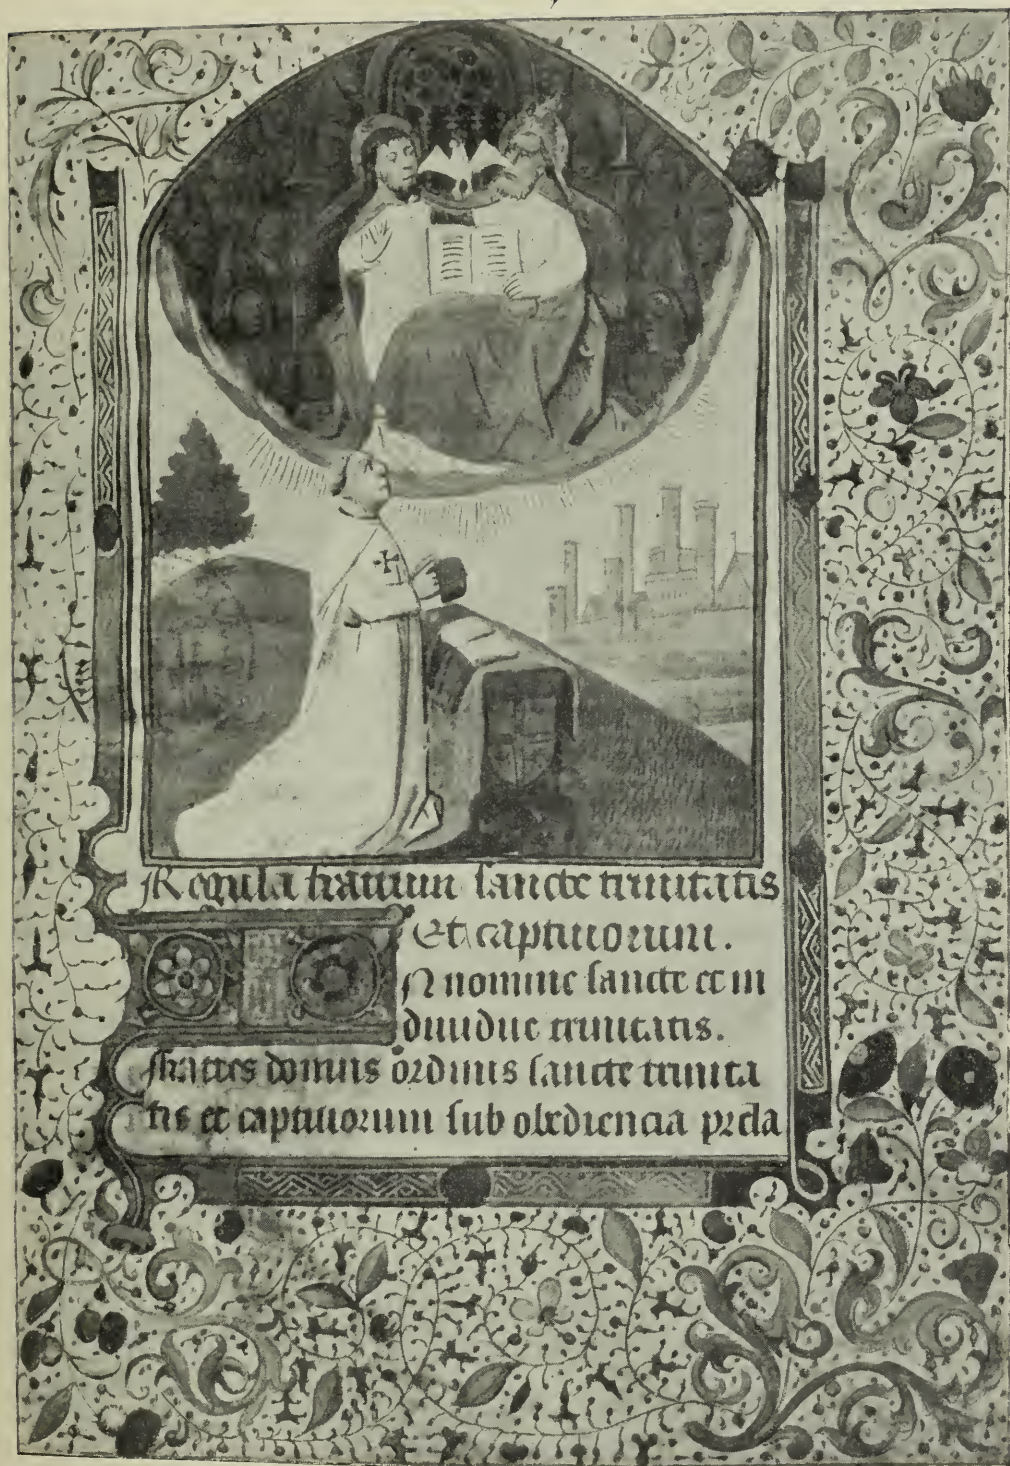 Regula fratrum sancte trinitatis
Et captiuorum.
IN nomine sancte et in
diuidue trinitatis.
fratres domus ordinis sancte trinita
tis et captiuorum sub obediencia prela